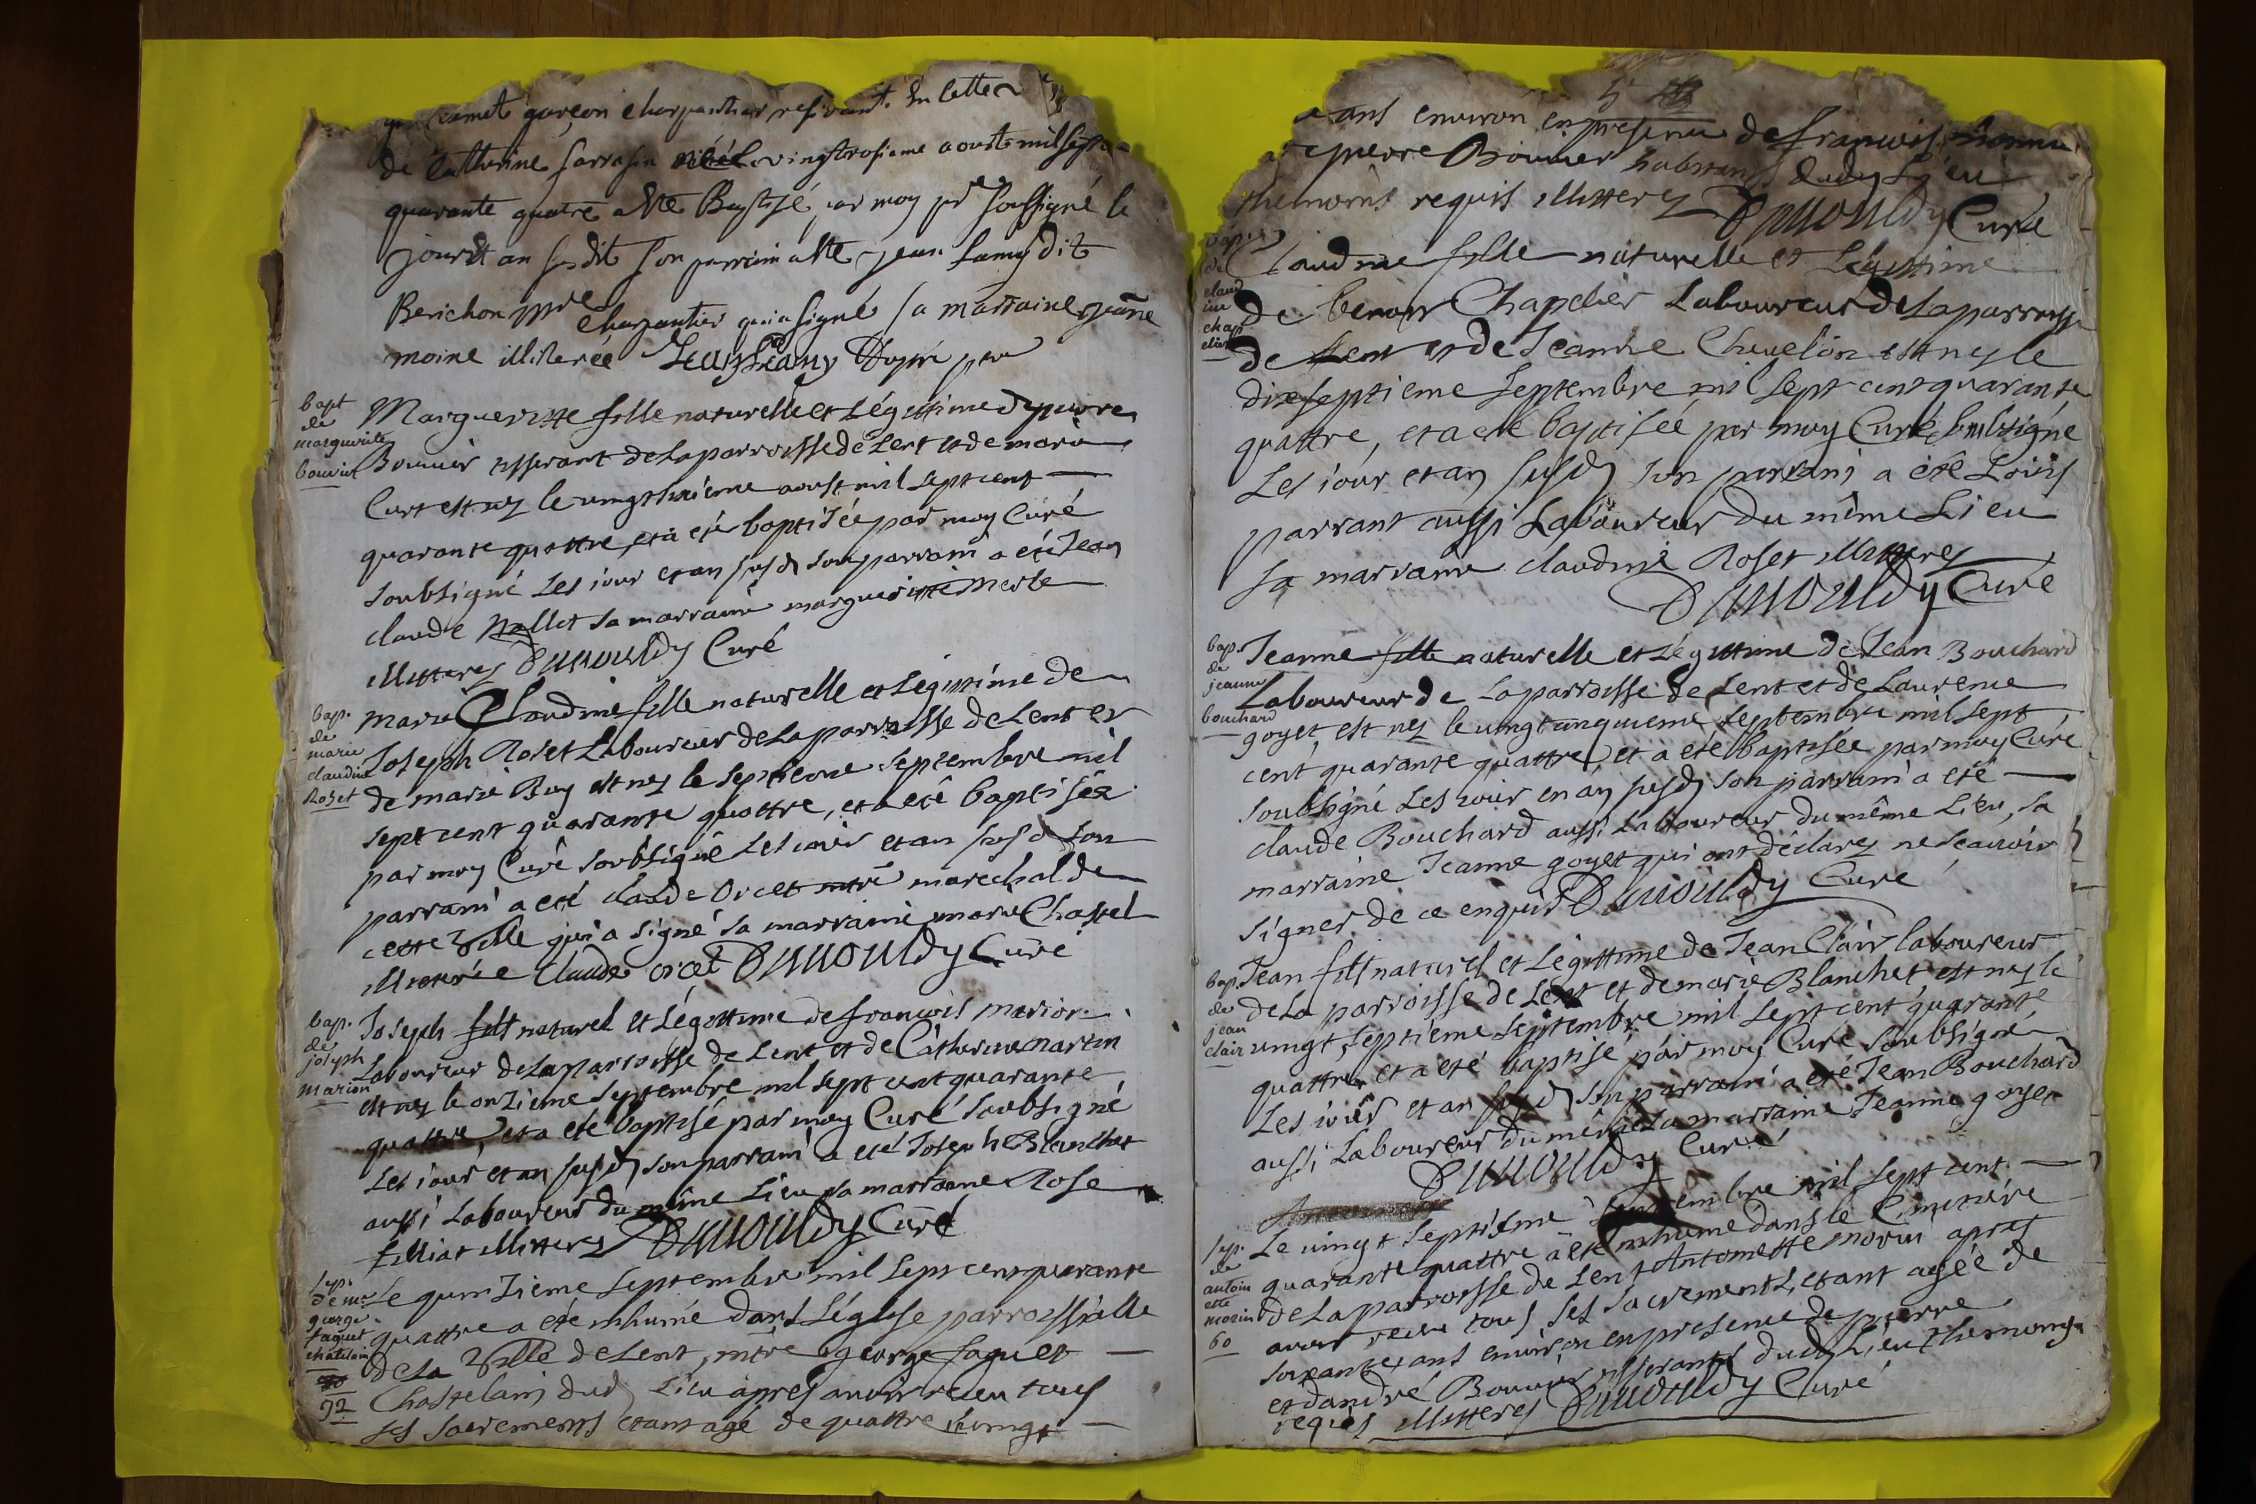 garçon charpantier residant en cette
de Catherine sarrasin le vingtroisieme aoust mil sept
quarante quatre a êté Baptisé par moy pre soussigné le
jour et an susdit son parrain a êté jean Lamy dit
Berichon mre charpantier qui a signé sa marraine
moine illiterée Jean Lamy
bapt
de
marguerite
bouvier
Margueritte fille naturelle et Légittime de pierre
Bouvier tisserant de la parroisse de Lent et de marie
Curt est nez le vingthuitieme aoust mil sept cent
quarante quattre, et a eté baptisée par moy Curé
soubsigné Les iour et an susd son parrain a eté Jean
claude Nallet sa marraine margueritte merle
illitterez Curé
bap.
de
marie
claudine
Roset
marie Claudine fille naturelle et Légittime de
Joseph Roset Laboureur de la parroisse de Lent et
de marie Buy est nez le septieme septembre mil
sept cent quarante quattre, et a eté baptisée
par moy Curé soubsigné Les iour et an susd son
parrain a eté claude orcet mtre marechal de
cette ville qui a signé sa marraine marie Chastel
illiterée Claude orcet Curé
bap.
de
joseph
marion
Joseph fils naturel et Légittime de francois marion
Laboureur de la parroisse de Lent et de Catherine martin
est nez le onzieme septembre mil sept cent quarante
quattre, et a eté baptisé par moy Curé soubsigné
Les iour et an susd son parrain a eté Joseph Blanchet
aussi Laboureur du même Lieu sa marraine Rose
filliat illitterez Curé
sep.
de mr
george
faguet
chatelain
92
Le quinzieme septembre mil sept cent quarante
quattre a eté inhumé dans l'église parroissialle
de la ville de Lent, mtre george faguet
Chastelain dud Lieu apres avoir receu tous
ses sacrements etant agé de quattre vingt
ans environ en presence de francois
pierre Bouvier habitants dudt Lieu
themoins requis illitterez Curé
bap.
de
claud
ine
chap
elier
Claudine fille naturelle et Légittime
de benoit Chapelier Laboureur de la parroisse
de Lent et de Jeanne Chevelon est nez le
dixseptieme septembre mil sept cent quarante
quattre, et a eté baptisée par moy Curé soubsigné
Les iour et an susd son parrain a eté Loüis
parrant aussi Laboureur du même Lieu
sa marraine claudine Roset illitterez
Curé
bap.
de
jeanne
bouchard
Jeanne fille naturelle et Légittime de Jean Bouchard
Laboureur de la parroisse de Lent et de Laurence
goyet, est nez le vingtcinquieme septembre mil sept
cent quarante quattre, et a eté baptisée par moy Curé
soubsigné Les iour et an susd son parrain a eté
claude Bouchard aussi Laboureur du même Lieu, sa
marraine Jeanne goyet qui ont déclarez ne scauoir
signer de ce enquis Curé
bap.
de
jean
clair
Jean fils naturel et Légittime de Jean Clair laboureur
de la parroisse de Lent et de marie Blanchet est nez le
vingt septieme septembre mil sept cent quarante
quattre et a eté baptisé par moy Curé soubsigné
Les iour et an susd son parrain a eté Jean Bouchard
aussi Laboureur du même sa marraine Jeanne goyet
Curé
sep.
de
antoin
ette
morin
60
Le vingt septiéme septembre mil sept cent
quarante quattre a eté inhumé dans le Cimetiére
de la parroisse de Lent Antoinette morin apres
avoir receu tous ses sacrements, etant agée de
soixante ans environ en presence de pierre
et d'andré Bouvier tisserants dudt Lieu themoings
requis illitterez Curé